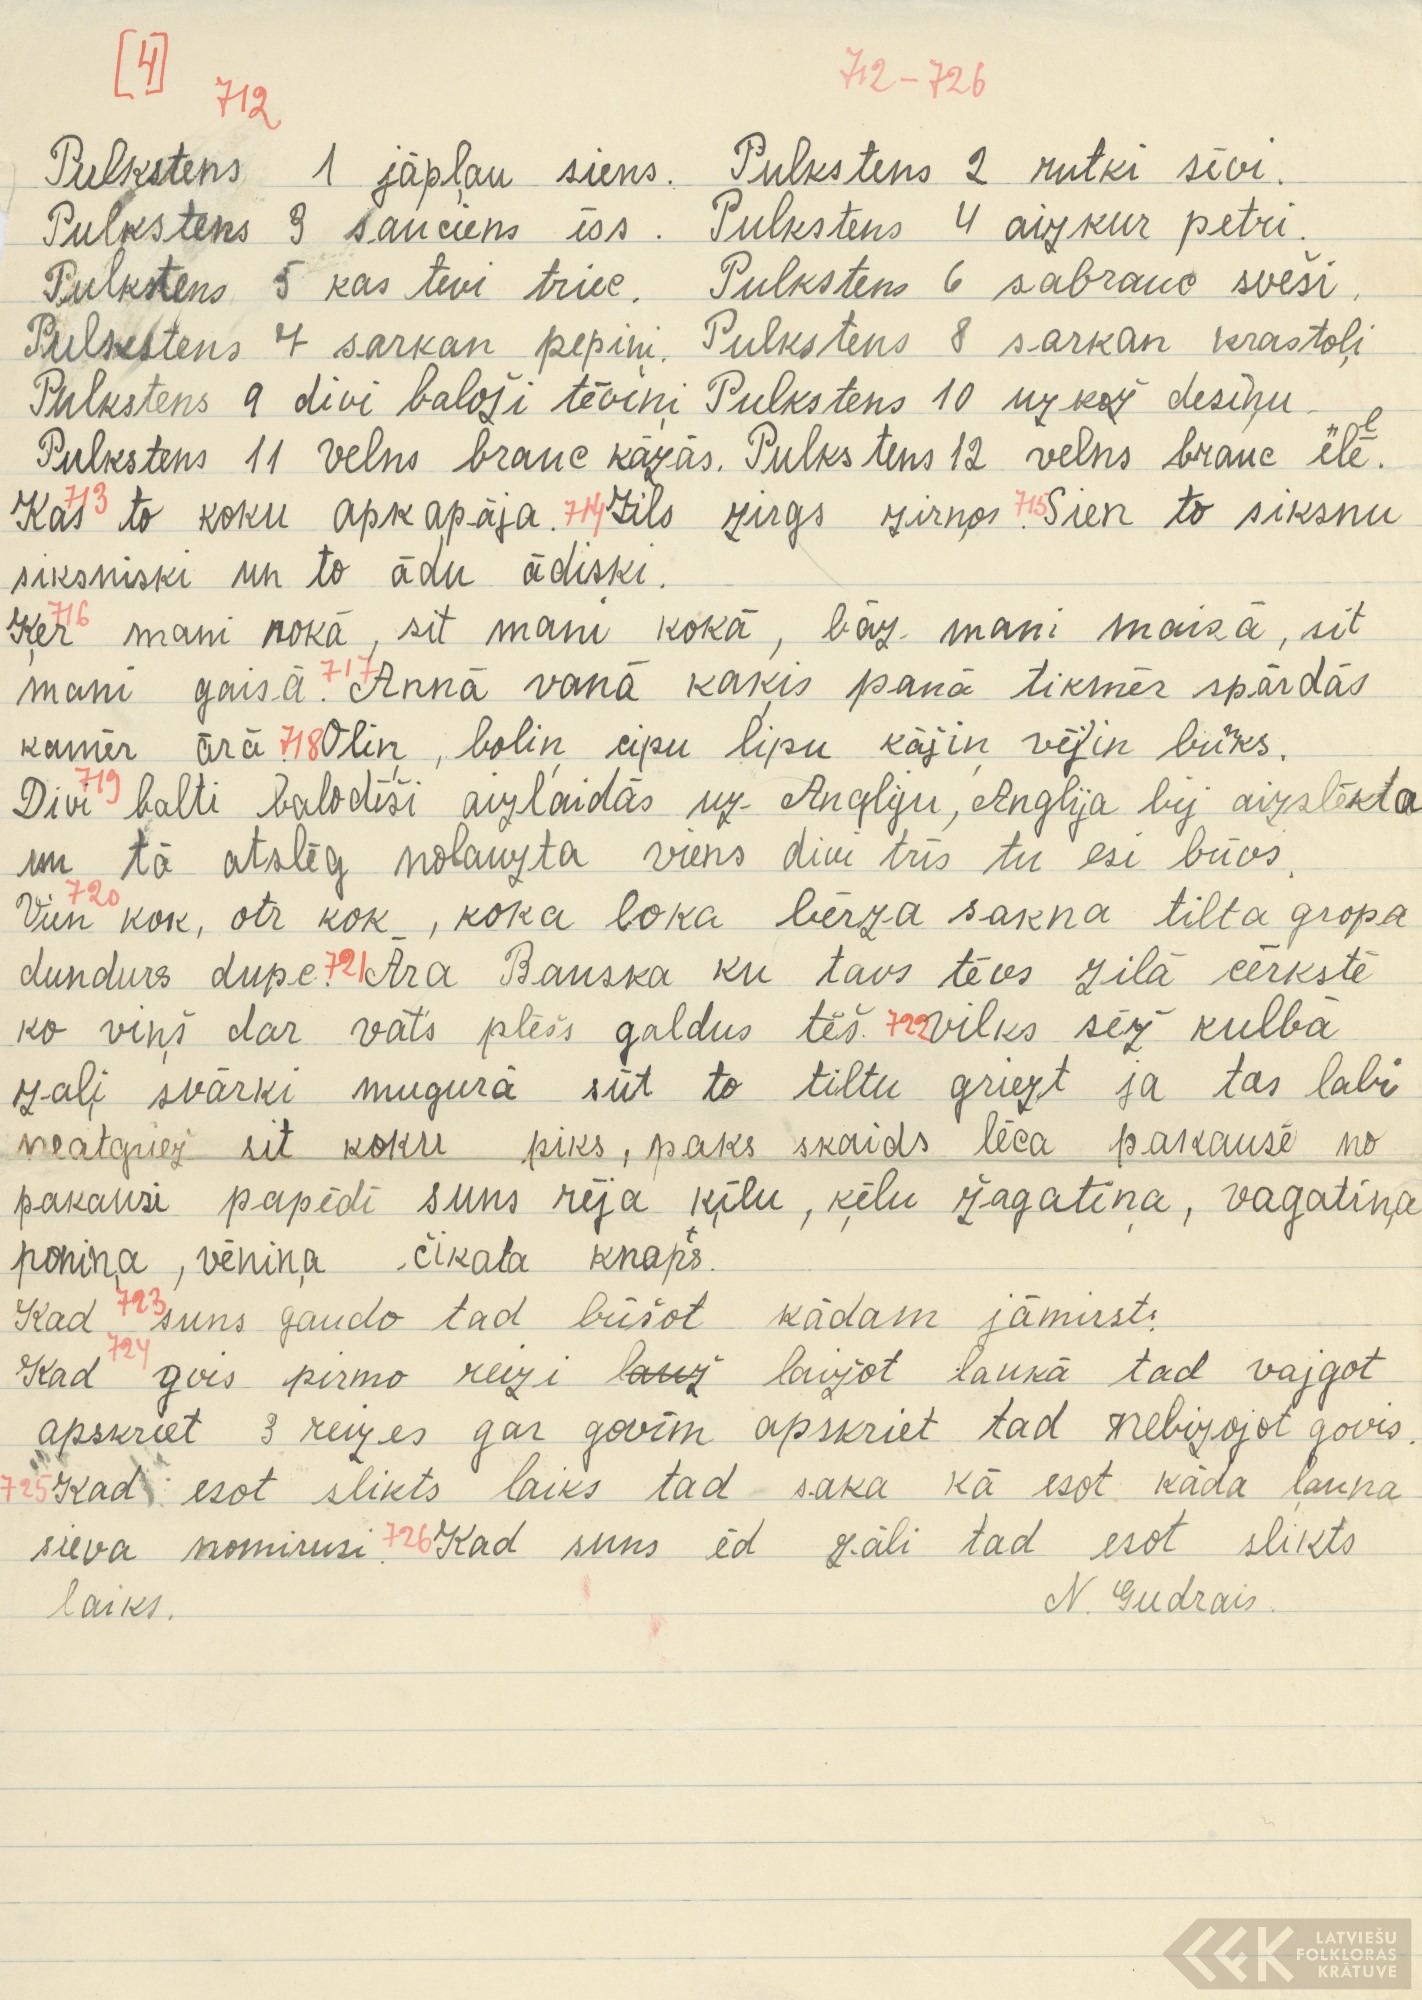 [4]
712
712-726
Pulkstens 1 jāpļau siens. Pulkstens 2 rutki sīvi.
Pulkstens 3 sauciens īss. Pulkstens 4 aizkur petri.
Pulkstens 5 kas tevi triec. Pulkstens 6 sabrauc sveši.
Pulkstens 7 sarkan pepiņi. Pulkstens 8 sarkan krastoļi
Pulkstens 9 divi baloži tēviņi Pulkstens 10 uzkož desiņu
Pulkstens 11 velns brauc kāzās. Pulkstens 12 velns brauc
Kas 713 to koku apkapāja. 714 Zils zirgs zirņos. 715 Sien to siksnu
siksniski un to ādu ādiski.
Ķer 716 mani rokā, sit mani kokā, bāz mani maisā, sit
mani gaisā. 717 Annā vanā kaķis panā tikmēr spārdās
kamēr ārā. 718 Oliņ, boliņ cipu lipu kājiņ vējiņ bunks.
Divi 719 balti balodīši aizlaidās uz Angliju, Anglija bij aizslēkta
un tā atslēg nolauzta viens divi trīs tu esi brīvs.
Vien 720 kok, otr kok, koka loka bērza sakna tilta gropa
dundurs dupe. 721 Āra Bauska ku tavs tēvs zilā cērkstē
ko viņš dar vāts plēšs galdus tēš. 722 vilks sēž kulbā
zaļi svārki mugurā sūt to tiltu griezt ja tas labi
neatgriež sit koku piks, paks skaids lēca pakausē no
pakausi papēdi suns rēja ķīlu, ķēlu žagatiņa, vagatiņa
poniņa, vēniņa čikata knapts.
Kad 723 suns gaudo tad būšot kādam jāmirst.
Kad 724 gvis pirmo reizi lauž laižot laukā tad vajgot
apskriet 3 reizes gar govīm apskriet tad nebizojot govis.
725 Kad esot slikts laiks tad saka kā esot kāda ļauna
sieva nomirusi. 726 Kad suns ēd zāli tad esot slikts
laiks. N. Gudrais.
LATVIEŠU
FOLKLORAS
KRĀTUVE